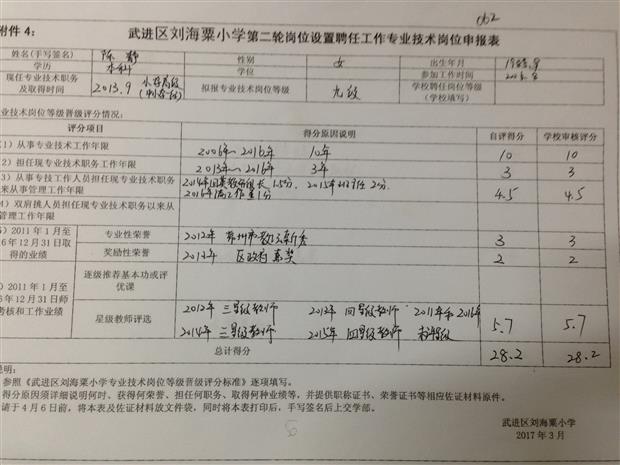 062
附件 4：
武进区刘海粟小学第二轮岗位设置聘任工作专业技术岗位申报表
姓名(手写签名) 陈静 性别 女 出生年月
学历 本科 学位 参加工作时间
现任专业技术职务及取得时间 2013.9 拟报专业技术岗位等级 九级 学校聘任岗位等级（学校填写）
业技术岗位等级晋级评分情况：
评分项目 得分原因说明 自评得分 学校审核评分
1）从事专业技术工作年限 2006年~2016年 10年 10 10
2）担任现专业技术职务工作年限 2013年~2016年 3年 3 3
3）从事专技工作人员担任现专业技术职务
来从事管理工作年限 4.5 4.5
4）双肩挑人员担任现专业技术职务以来从
管理工作年限
）2011 年 1 月至
6 年 12 月 31 日取
得的业绩
专业性荣誉 2012年 3 3
奖励性荣誉 区政府嘉奖 2 2
逐级推荐基本功或评
优课
）2011 年 1 月至
6 年 12 月 31 日师
考核和工作业绩
星级教师评选 2012年 三星级教师 2013年 四星级教师 2011年和2016年
2014年 三星级教师 2015年 四星级教师 5.7 5.7
总计得分 28.2 28.2
说明：
参照《武进区刘海粟小学专业技术岗位等级晋级评分标准》逐项填写。
得分原因须详细说明何时、获得何荣誉、担任何职务、取得何种业绩等，并提供职称证书、荣誉证书等相应佐证材料原件。
请于 4 月 6 日前，将本表及佐证材料放文件袋，同时将本表打印后，手写签名后上交学部。
武进区刘海粟小学
2017 年 3 月